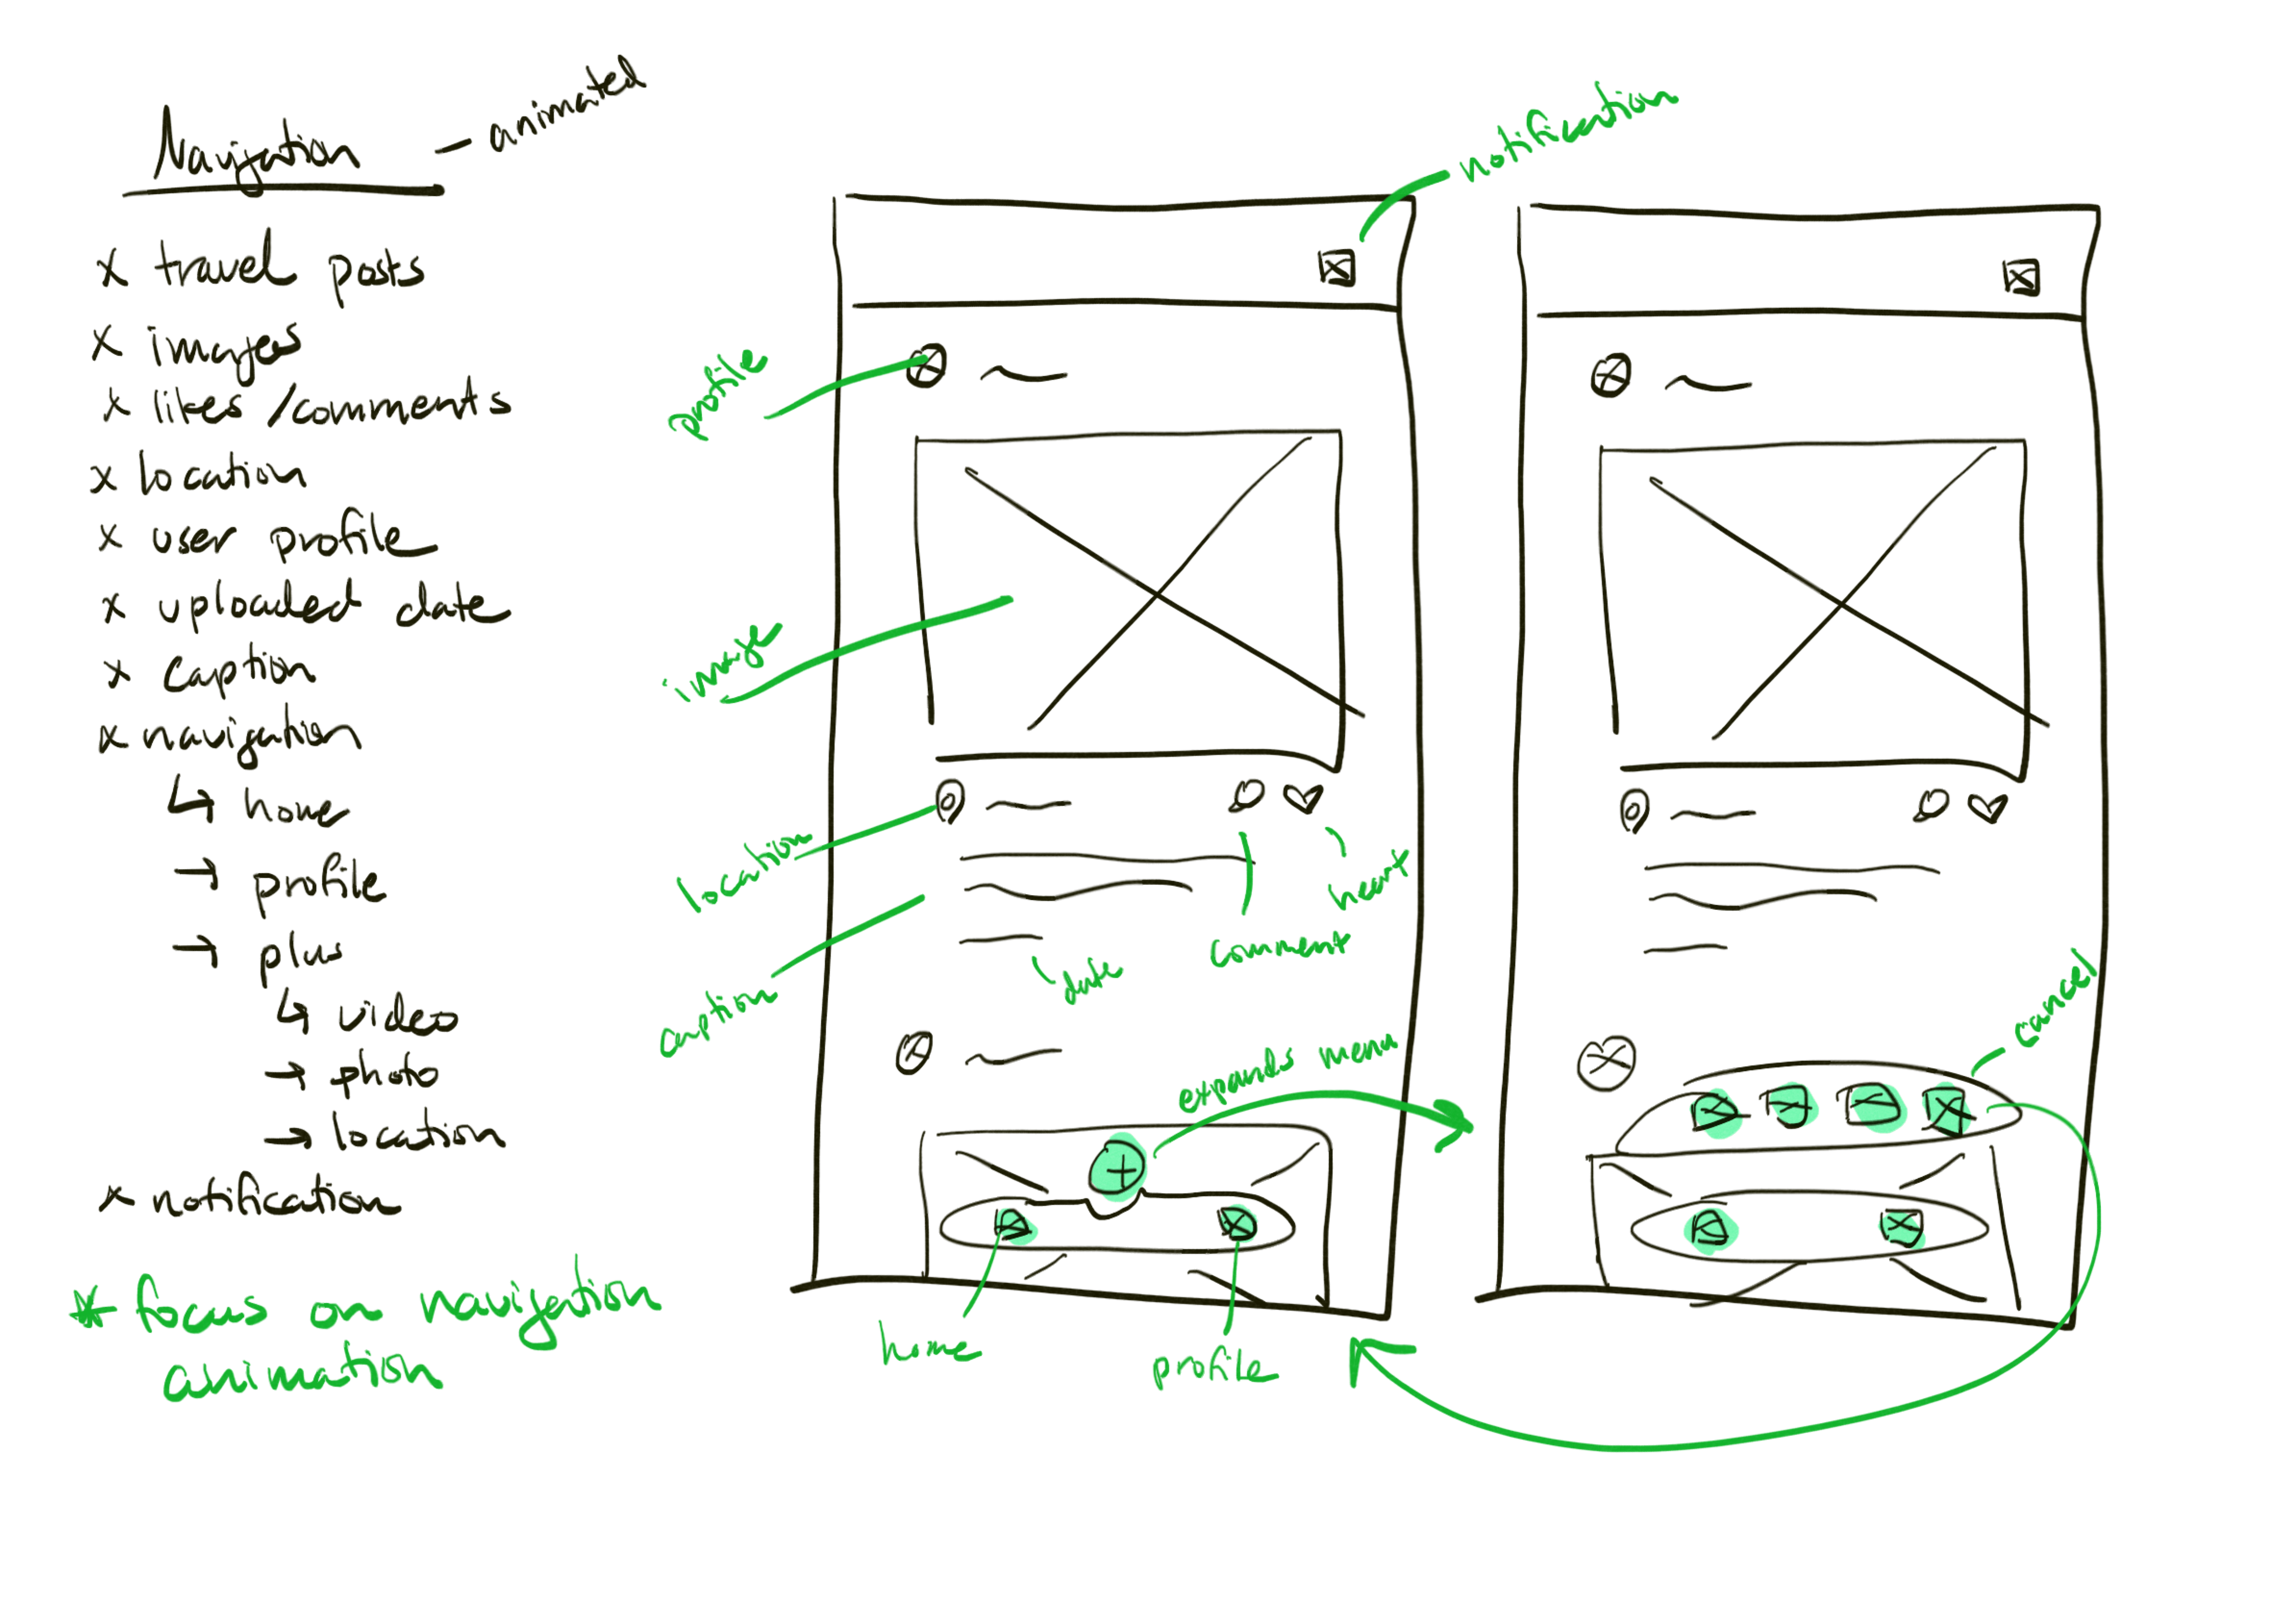 Navigation - animated
x travel posts
x images
x likes/comments
x location
x user profile
x uploaded date
x caption
x navigation
↳ home
→ profile
→ plus
↳ video
→ photo
→ location
x notification
* focus on navigation
animation
notification
profile
image
location
caption
date
comment
heart
expands menu
home
profile
cancel